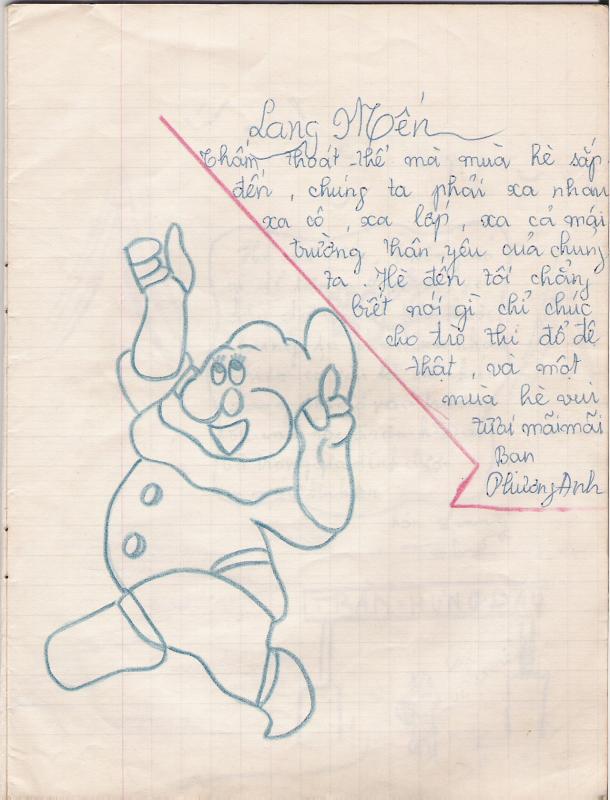 Lang Mến
Thấm thoát thế mà mùa hè sắp
đến, chúng ta phải xa nhau
xa cô, xa lớp, xa cả mái
trường thân yêu của chung
ta. Hè đến tôi chẳng
biết nói gì chỉ chúc
cho trò thi đỗ đê
thật, và một
mùa hè vui
tươi mãi mãi
Ban
Phương Anh